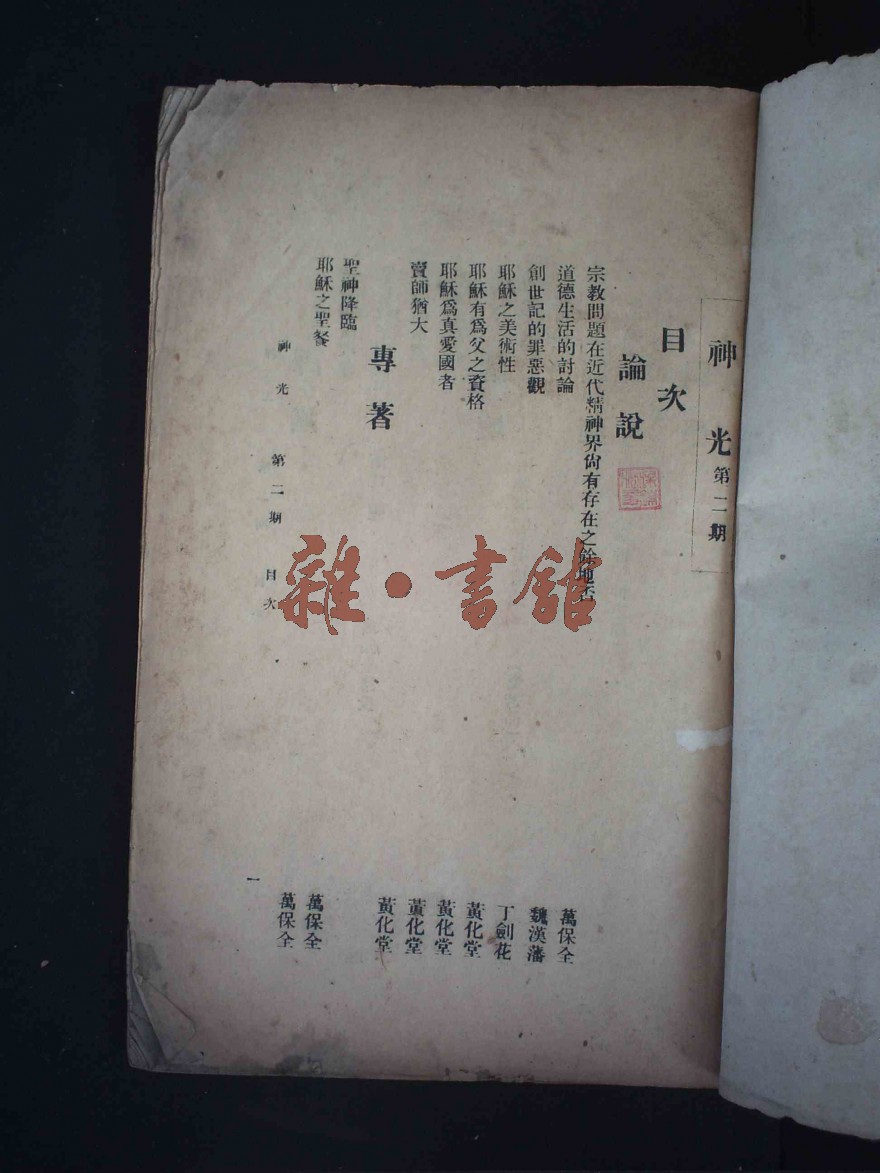 神光第二期
目次
論說
宗教問題在近代精神界尙有存在之餘地否
萬保全
道德生活的討論
魏漢藩
創世記的罪惡觀
丁劍花
耶穌之美術性
黃化堂
耶穌有爲父之資格
黃化堂
耶穌爲真愛國者
黃化堂
賣師猶大
黃化堂
專著
聖神降臨
萬保全
耶穌之聖餐
萬保全
神光 第二期 目次
一
雜·書館